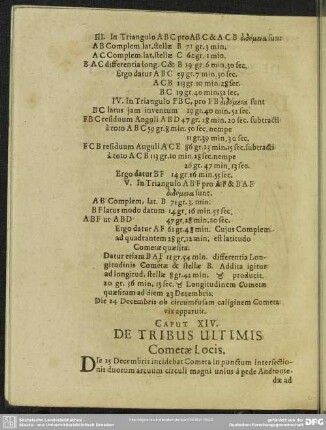 III. In Triangulo ABC pro ABC & ACB διδόμενα sunt
AB Complem. lat. stellæ B 71 gr. 3 min.
AC Complem. lat. stellæ C 62 gr. 1 min.
BAC differentia long. C & B 19 gr. 6 min. 30 sec.
Ergo datur ABC 59 gr. 7 min. 50 sec.
ACB 113 gr. 10 min. 28 sec.
BC 19 gr. 40 min. 52 sec.
IV. In Triangulo FBC, pro FB διδόμενα sunt
BC latus jam inventum 19 gr. 40 min. 52 sec.
FBC residuum Anguli ABD 47 gr. 28 min. 20 sec. subtracti
à toto ABC 59 gr. 8 min. 50 sec. nempe
11 gr. 39 min. 30 sec.
FCB residuum Anguli ACE 86 gr. 23 min. 15 sec. subtracti
à toto ACB 113 gr. 10 min. 28 sec. nempe
26 gr. 47 min. 13 sec.
Ergo datur BF 14 gr. 16 min. 55 sec.
V. In Triangulo ABF pro AF & BAF
διδόμενα sunt.
AB Complem. lat. B 71 gr. 3. min.
BF latus modo datum 14 gr. 16 min. 55 sec.
ABF ut ABD 47 gr. 28 min. 20 sec.
Ergo datur AF 61 gr. 48 min. Cujus Complem.
ad quadrantem 28 gr. 12 min. est latitudo
Cometæ quæsita.
Datur etiam BAF 11 gr. 54 min. differentia Lon-
gitudinis Cometæ & stellæ B. Addita igitur
ad longitud. stellæ 8 gr. 42 min. ♉ producit.
20 gr. 36 min. 15 sec. ♉ Longitudinem Cometæ
quæsitam ad diem 23 Decembris.
Die 24 Decembris ob circumfusam caliginem Cometa
vix apparuit.
CAPUT XIV.
DE TRIBUS ULTIMIS
Cometæ Locis.
DIe 25 Decembris incidebat Cometa in punctum intersectio-
nis duorum arcuum circuli magni unius à pede Androme-
dæ ad